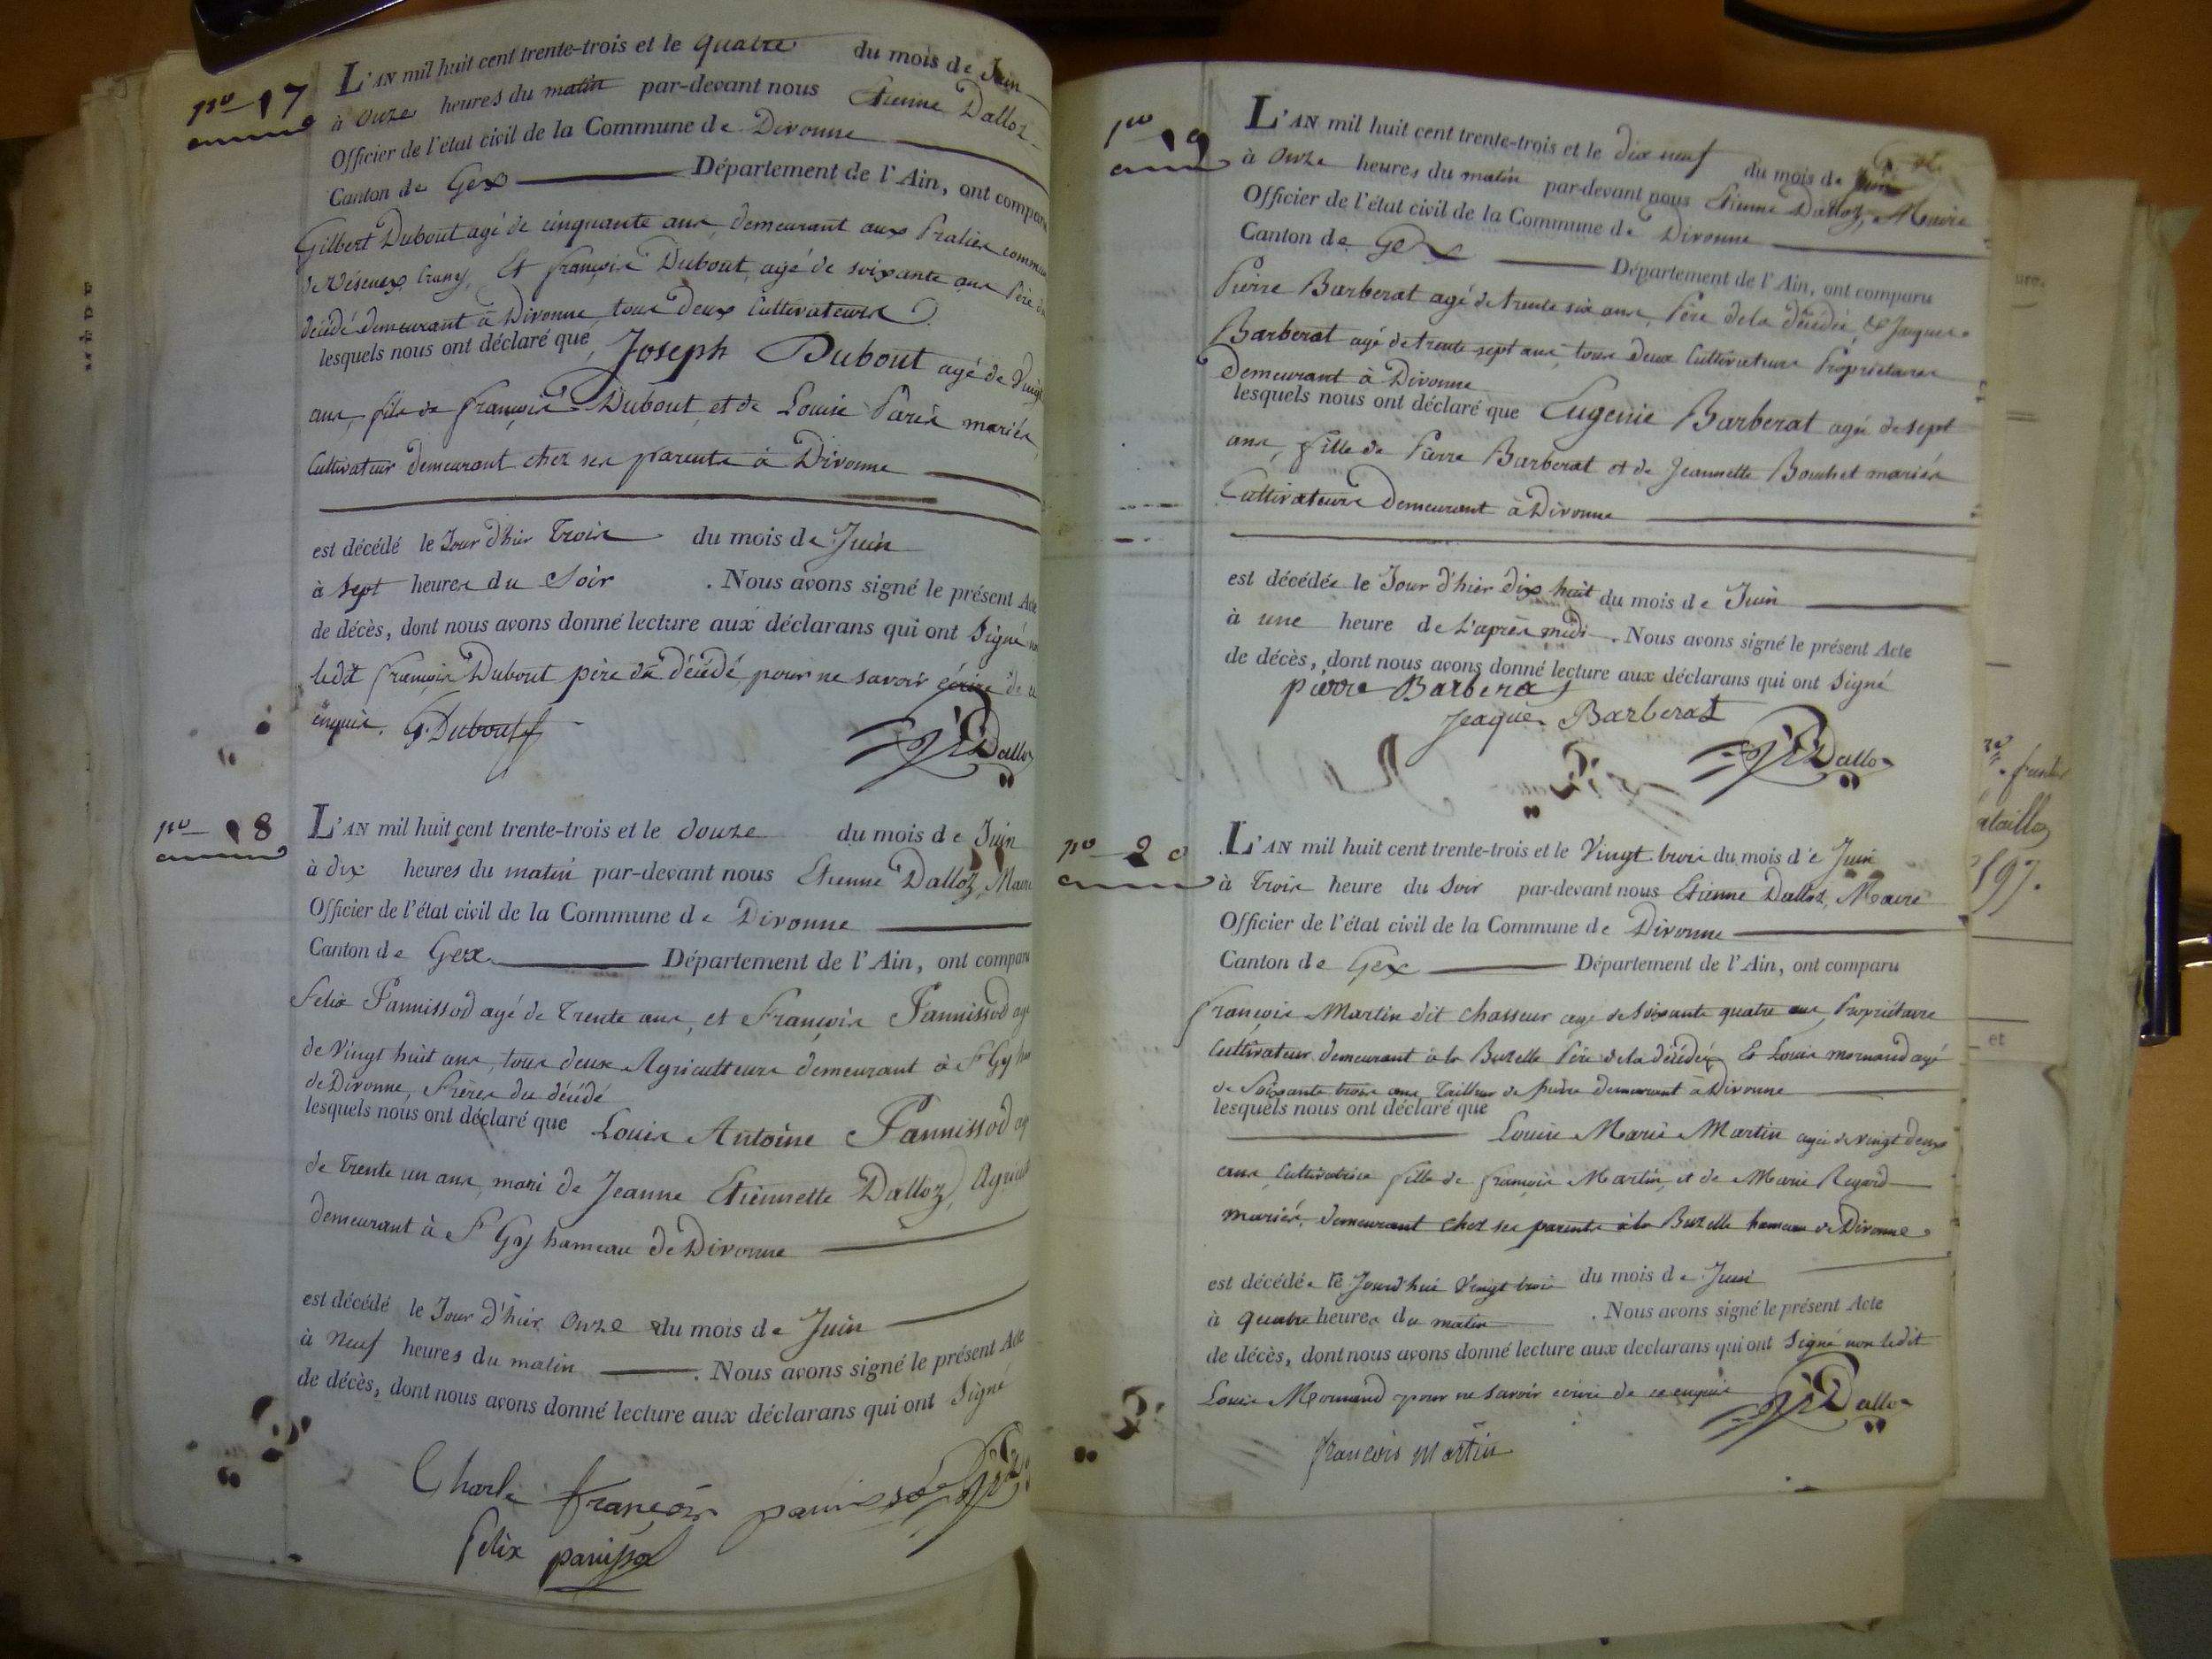 nº 17
L'AN mil huit cent trente-trois et le quatre du mois de Juin
à onze heures du matin par-devant nous Etienne Dalloz
Officier de l'état civil de la Commune de Divonne
Canton de Gex Département de l'Ain, ont comparu
Gilbert Dubout agé de cinquante ans, demeurant aux commune
de Et françois Dubout, agé de soixante ans Père du
décédé demeurant à Divonne, tous deux Cultivateurs
lesquels nous ont déclaré que Joseph Dubout agé de Vingt
ans, fils de françois Dubout, et de Louise Paris mariés,
Cultivateur demeurant chez ses parents à Divonne
est décédé le Jour d'hier Trois du mois de Juin
à sept heures du Soir . Nous avons signé le présent Acte
de décès, dont nous avons donné lecture aux déclarans qui ont Signé non
ledit françois Dubout père du décédé, pour ne savoir écrire de ce
enquis. G. Dubout
E Dalloz
nº 18
L'AN mil huit cent trente-trois et le douze du mois de Juin
à dix heures du matin par-devant nous Etienne Dalloz, Maire
Officier de l'état civil de la Commune de Divonne
Canton de Gex Département de l'Ain, ont comparu
Felix Pannissod agé de Trente ans, et François Pannissod agé
de Vingt huit ans, tous deux Agriculteurs demeurant à St Gy
de Divonne, Frères du décédé
lesquels nous ont déclaré que Louis Antoine Pannissod agé
de Trente un ans, mari de Jeanne Etiennette Dalloz, Agricult
demeurant à St Gy hameau de Divonne
est décédé le Jour d'hier onze du mois de Juin
à Neuf heures du matin . Nous avons signé le présent Acte
de décès, dont nous avons donné lecture aux déclarans qui ont Signé
Charle françois
felix
nº 19
L'AN mil huit cent trente-trois et le dix neuf du mois de Juin
à onze heures du matin par-devant nous Etienne Dalloz, Maire
Officier de l'état civil de la Commune de Divonne
Canton de Gex Département de l'Ain, ont comparu
Pierre Barberat agé de trente six ans, Père de la décédée, & Jaques
Barberat agé de trente sept ans, tous deux Cultivateurs Propriétaires
Demeurant à Divonne
lesquels nous ont déclaré que Eugenie Barberat agée de sept
ans, fille de Pierre Barberat et de Jeannette Bouchet mariés
Cultivateurs demeurant à Divonne
est décédée le Jour d'hier dix huit du mois de Juin
à une heure de l'après midi . Nous avons signé le présent Acte
de décès, dont nous avons donné lecture aux déclarans qui ont Signé
pierre Barbera
Jeaque Barberat
E Dalloz
nº 20
L'AN mil huit cent trente-trois et le Vingt trois du mois de Juin
à Trois heure du Soir par-devant nous Etienne Dalloz, Maire
Officier de l'état civil de la Commune de Divonne
Canton de Gex Département de l'Ain, ont comparu
François Martin dit chasseur agé de Soixante quatre ans Propriétaire
Cultivateur demeurant à la Buzelle Père de la décédée Et Louis mormand agé
de Soixante trois ans Tailleur de pierre demeurant à Divonne
lesquels nous ont déclaré que
Louise Marie Martin agée de vingt deux
ans, Cultivatrice fille de françois Martin, et de Marie Regard
mariés, demeurant chez ses parents à la Buzelle hameau de Divonne
est décédée le Jourd'hui Vingt trois du mois de Juin
à quatre heures du matin . Nous avons signé le présent Acte
de décès, dont nous avons donné lecture aux declarans qui ont Signé non ledit
Louis Mormand pour ne savoir ecrire de ce enquis
E Dalloz
francois Martin